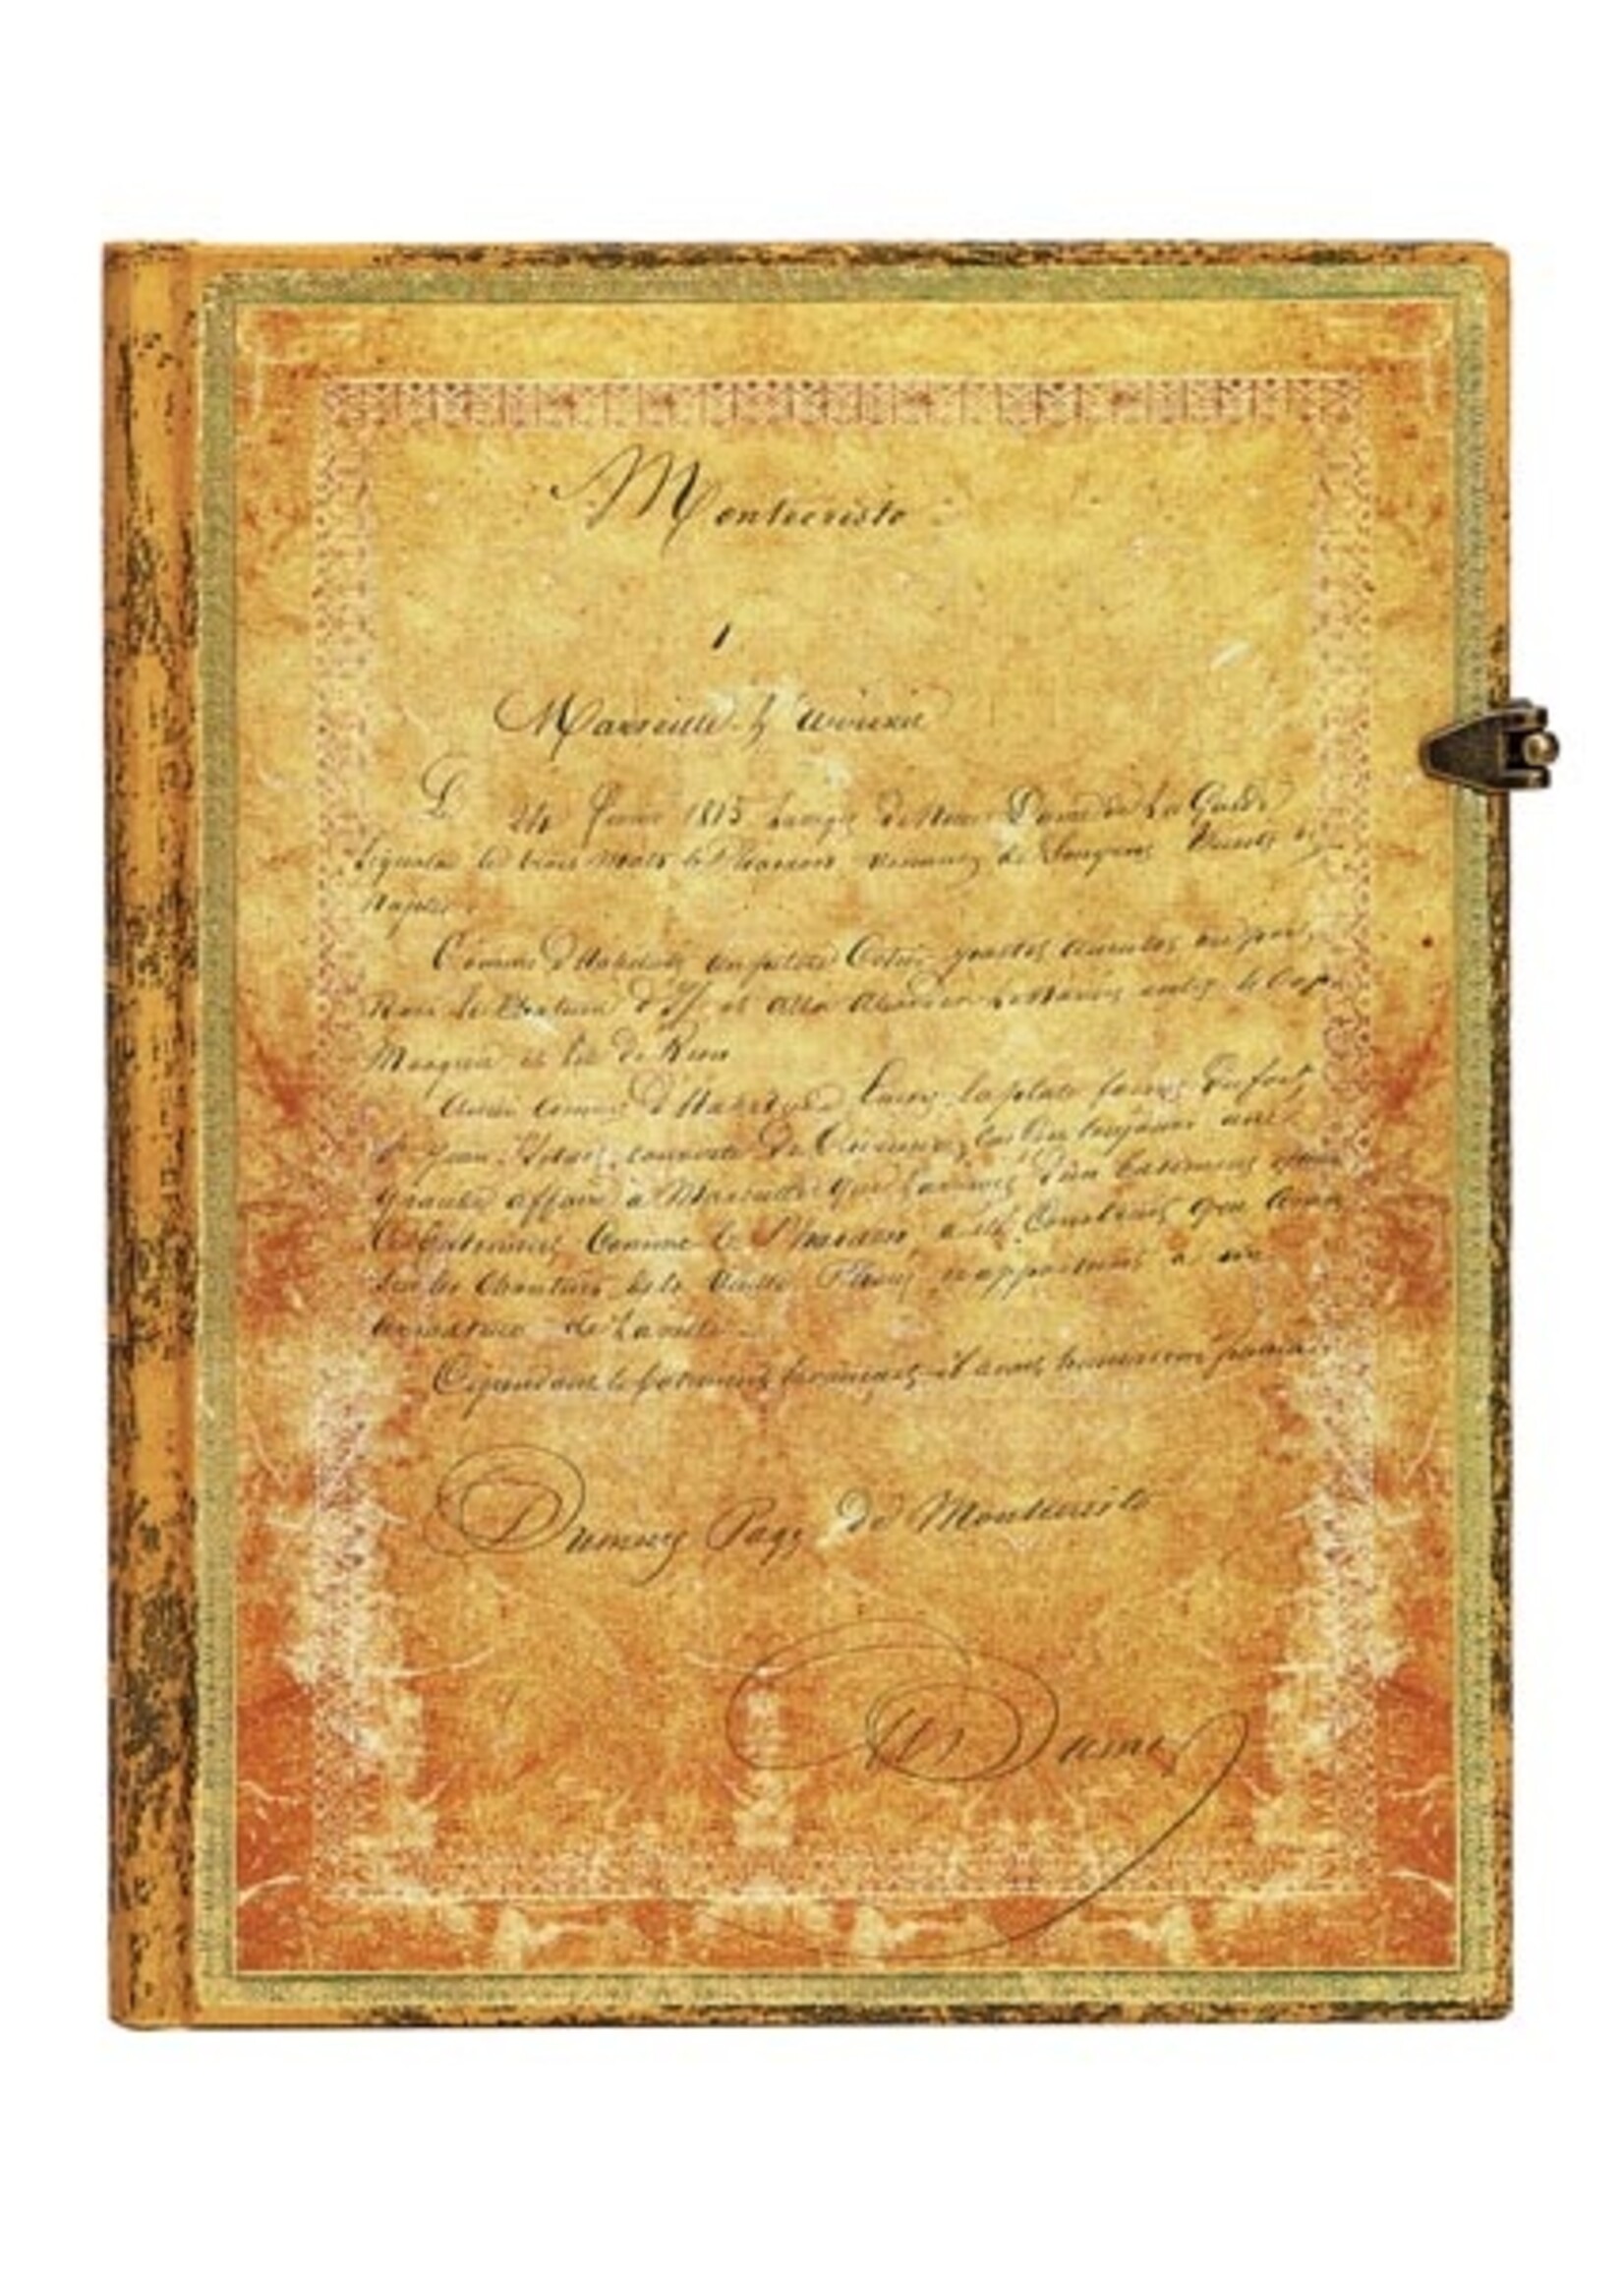 Montecristo
1
Marseille. L'arrivée
Le 24 février 1815 la vigie de Notre Dame de La Garde
Signala le trois mats le Pharaon venant de Smyrne Trieste et
Naples.
Comme d'habitude un pilote Cotier partit aussitot du port,
Rasa le Chateau d'If et alla aborder le Navire entre le Cap
Morgiou et l'ile de Riou
Aussi comme d'habitude la plate forme du fort
St Jean s'etait couverte de Curieux, car c'est toujours une
grande affaire a Marseille que l'arrivée d'un batiment
batiment Comme le Pharaon, a été Construit
Sur les Chantiers de la vieille Phocée, appartient a un
armateur de La ville
Cependant le batiment s'avançait il avait heureusement franchi
Dumas Page de Montecristo
A Dumas